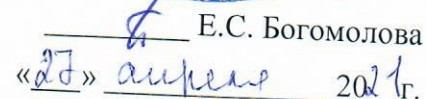 Е.С. Богомолова
«27» апреля 2021г.